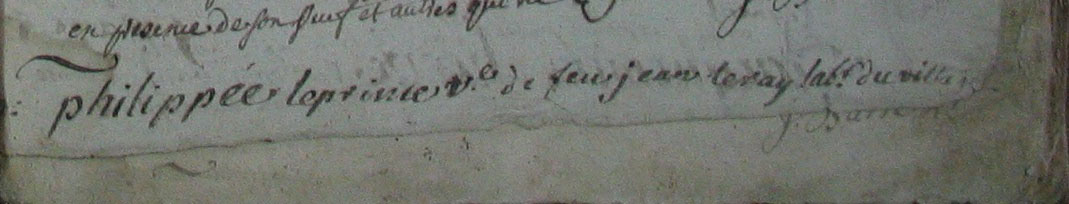 en presence de son fieuf et autres qui ne
philippée leprince v.e de feu jean leray lab.r du villa